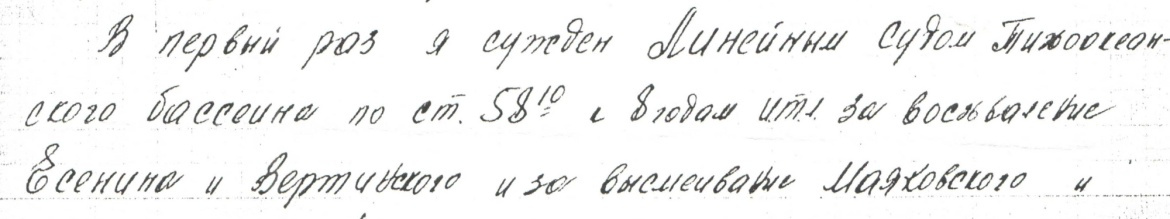 В первый раз я сужден Линейным судом Тихоокеан-
ского бассеина по ст. 58¹⁰ к 8 годам итл. за восхваление
Есенина и Вертинского и за высмеивание Маяковского и